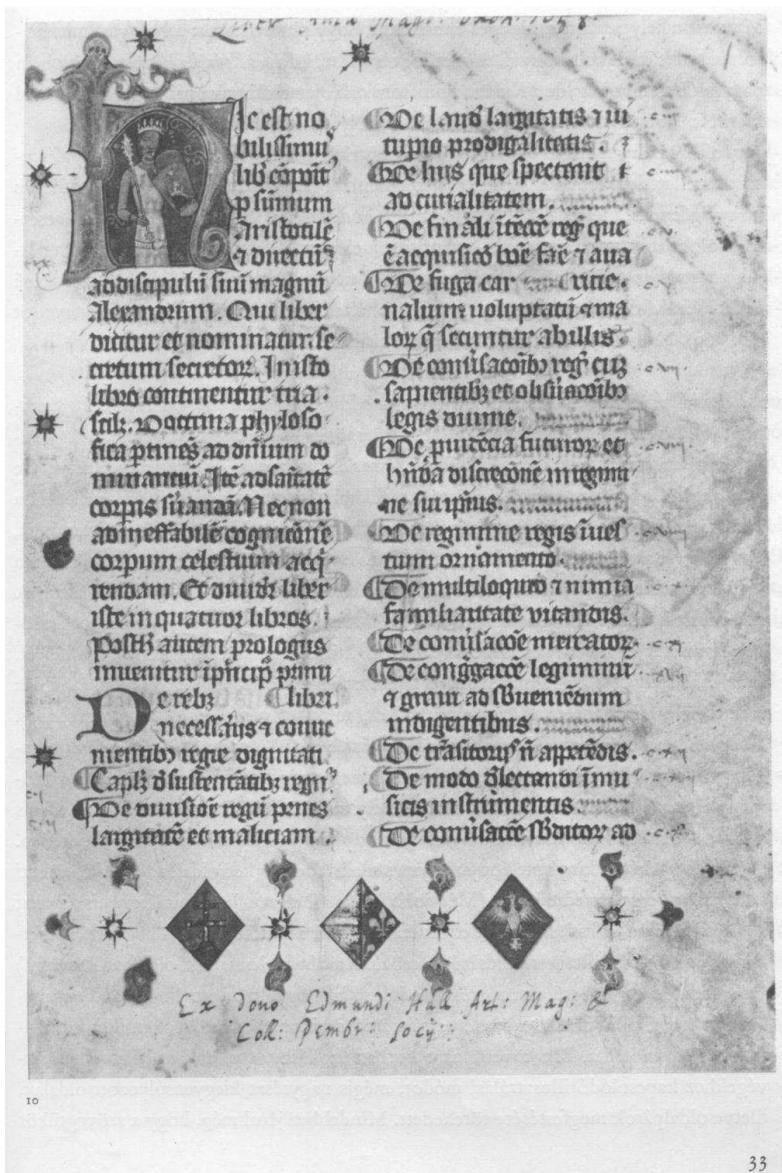 Liber Aula Mag:
1
Hic est no
bilissimu᷒
lib᷒ cōpoit᷒
p sūmum
Aristotilē
⁊ directū᷒
ad discipulū suū magnū
Alexandrum. Qui liber
dicitur et nominatur se
cretum secretoꝝ. In isto
libro continentur tria.
scilꝫ. Doctrina phyloso
fica ꝑtinēs ad dn̄ium do
minantiū. Itē ad sāitatē
corpīs suandā. Nec non
ad ineffabilē cognicōnē
corpum celestium acq̄
rendam. Et diuidr̄ liber
iste in quatuor libros.
Postꝙ autem prologus
inuenitur ī pn̄cip̄ primi
De rebꝫ ¶ libri.
necessarijs ⁊ conue
nientibꝫ regie dignitati
¶ Caplꝫ d̄ sustentātibꝫ regn̄
¶ De diuisiōe regū penes
largitatē et maliciam.
¶ De laud̄ largitatis ⁊ ui
tupio prodigalitatis.
¶ De hijs que spectant
ad curialitatem.
¶ De finali ītēcōe reḡ que
ē acquisicō bōe fāe ⁊ aua
¶ De fuga car ricie.
nalium uoluptatū ⁊ ma
loꝝ q̄ secuntur ab illis.
¶ De conūsacōibꝫ reḡ cuꝫ
sapientibꝫ et obsūacōibꝫ
legis diuine.
¶ De ꝓuidēcia futuroꝝ et
hn̄da discrecōnē in regimi
ne sui ipīus.
¶ De regimine regis ī ues
tium ornamento.
¶ De multiloquio ⁊ nimia
familiaritate vitandis.
¶ De conūsacōe mercator.
¶ De cong̅gacōe leguminū
⁊ granū ad sbueniēdum
indigentibus.
¶ De trāsitorijs n̄ appetēdis.
¶ De modo d̄lectandi ī mu
sicis instrūmentis.
¶ De conūsacōe sbditoꝝ ad
Ex dono Edmundi Hall Art: Mag: &
Coll: Pembr: socij
10
33